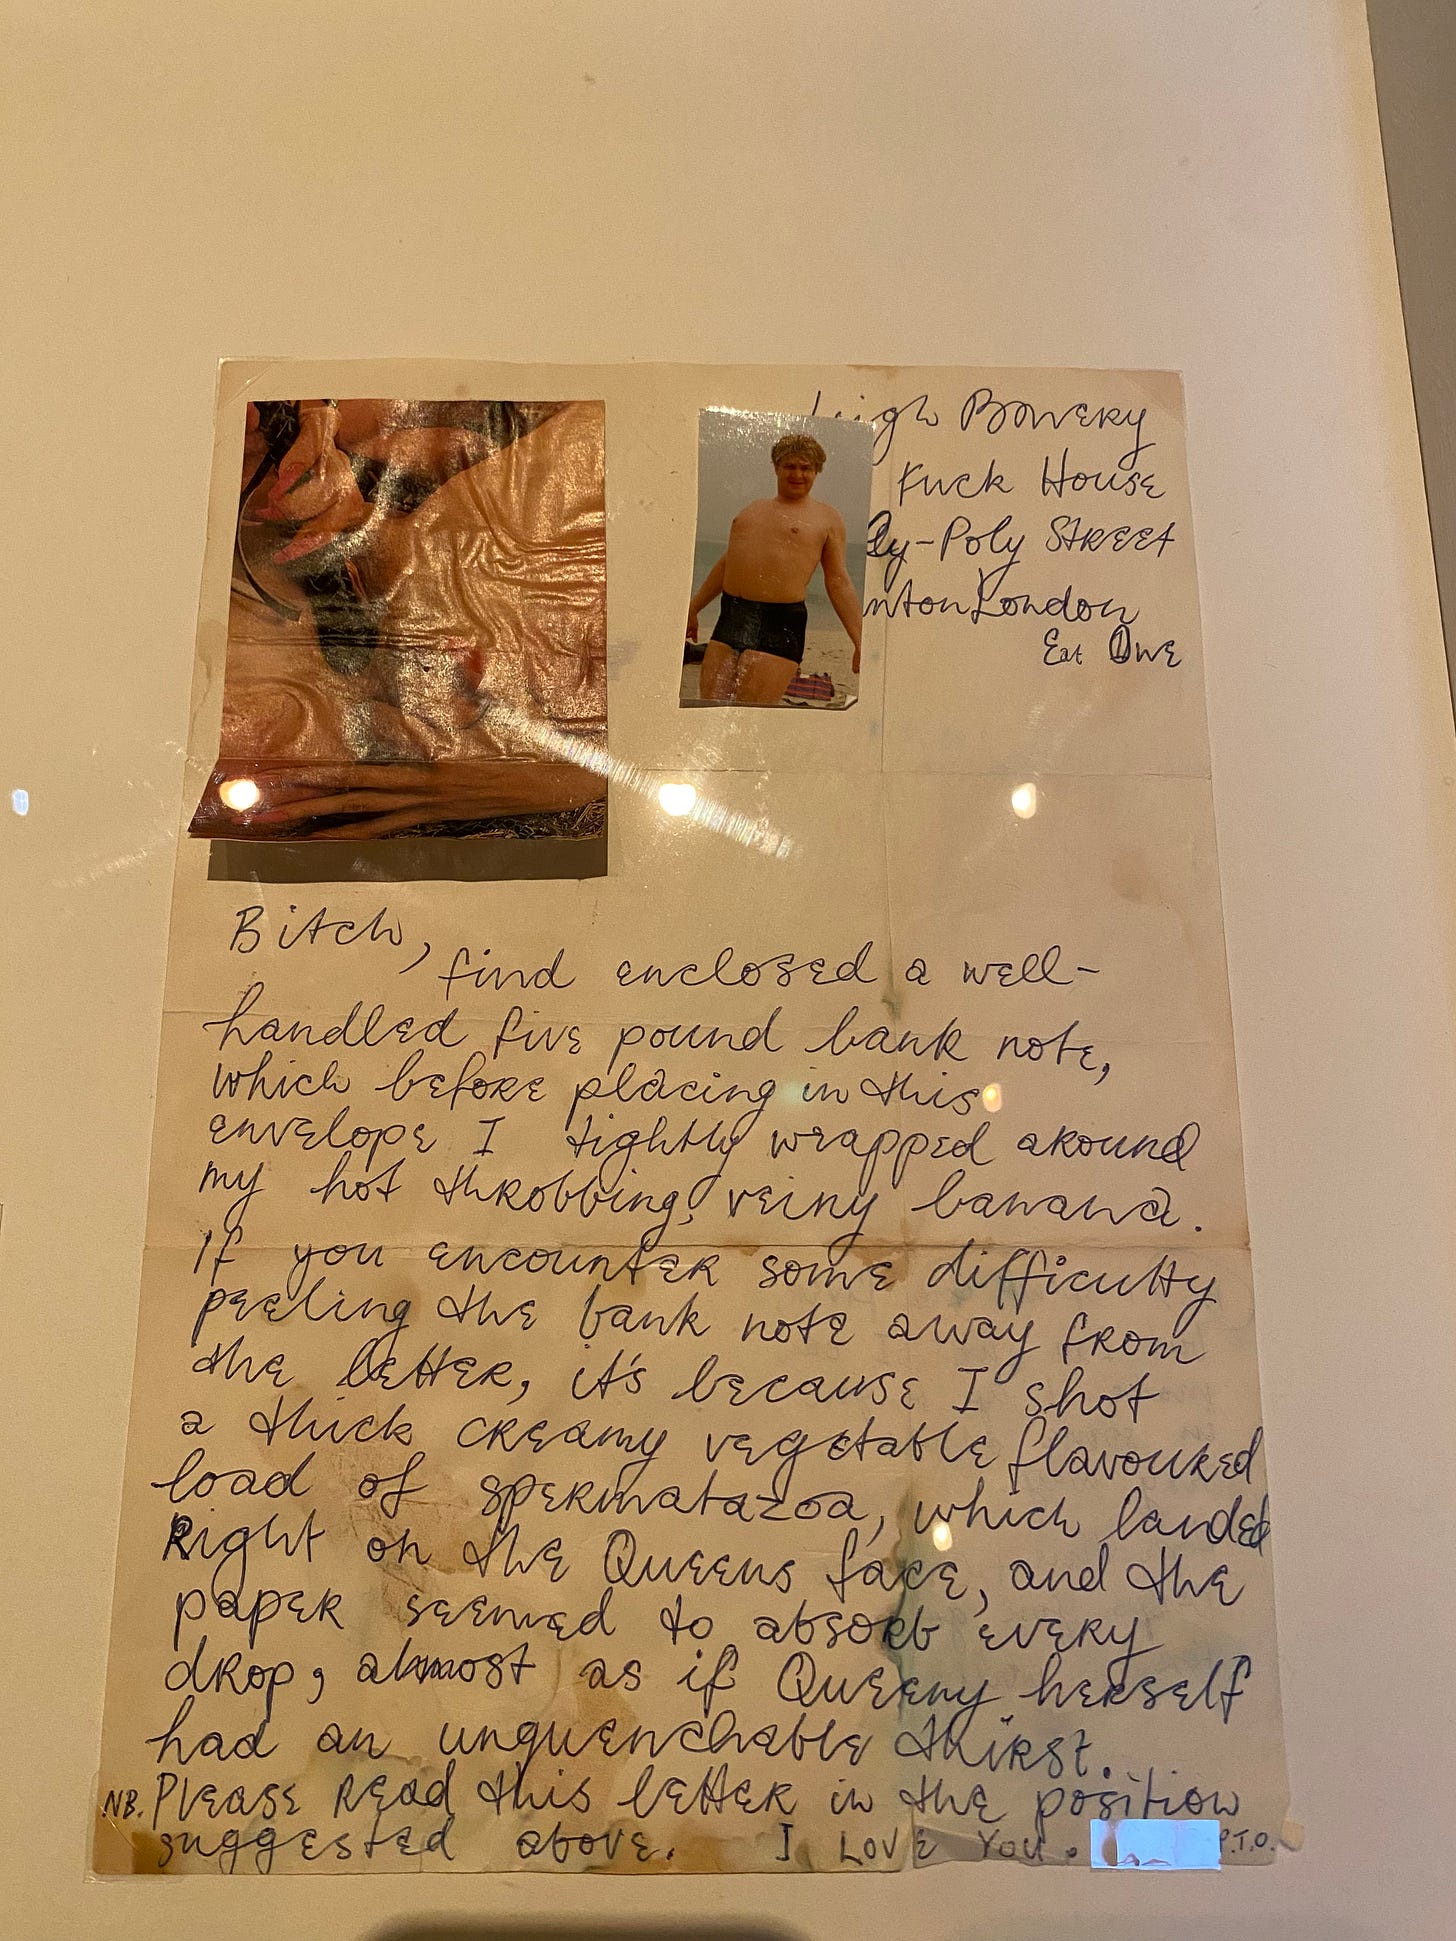 Leigh Bowery
Fuck House
ly-Poly Street
nton London
Eat Owe
Bitch,
find enclosed a well-
handled five pound bank note,
which before placing in this
envelope I tightly wrapped around
my hot throbbing, veiny banana.
If you encounter some difficulty
peeling the bank note away from
the letter, it's because I shot
a thick creamy vegetable flavoured
load of spermatazoa, which landed
Right on the Queens face, and the
paper seemed to absorb every
drop, almost as if Queeny herself
had an unquenchable thirst.
NB. Please read this letter in the position
suggested above. I LOVE YOU. P.T.O.